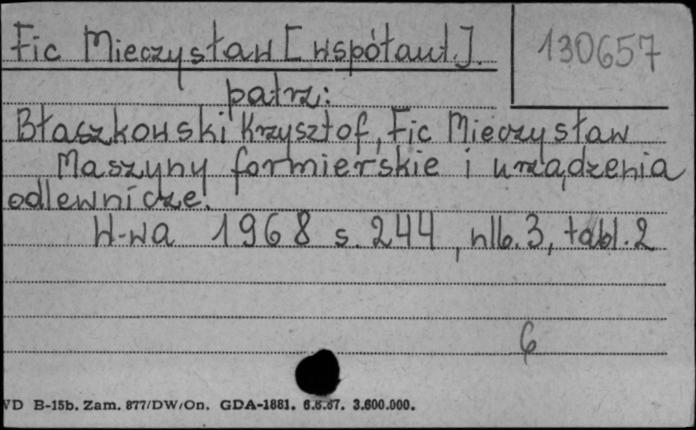 Fic Mieczysław [współaut.].
130657
patrz:
Błaszkowski Krzysztof, Fic Mieczysław
Maszyny formierskie i urządzenia
odlewnicze.
W-wa 1968 s. 244, nlb. 3, tabl. 2
6
VD B-15b. Zam. 877/DW/On. GDA-1881. 6.6.67. 3.600.000.